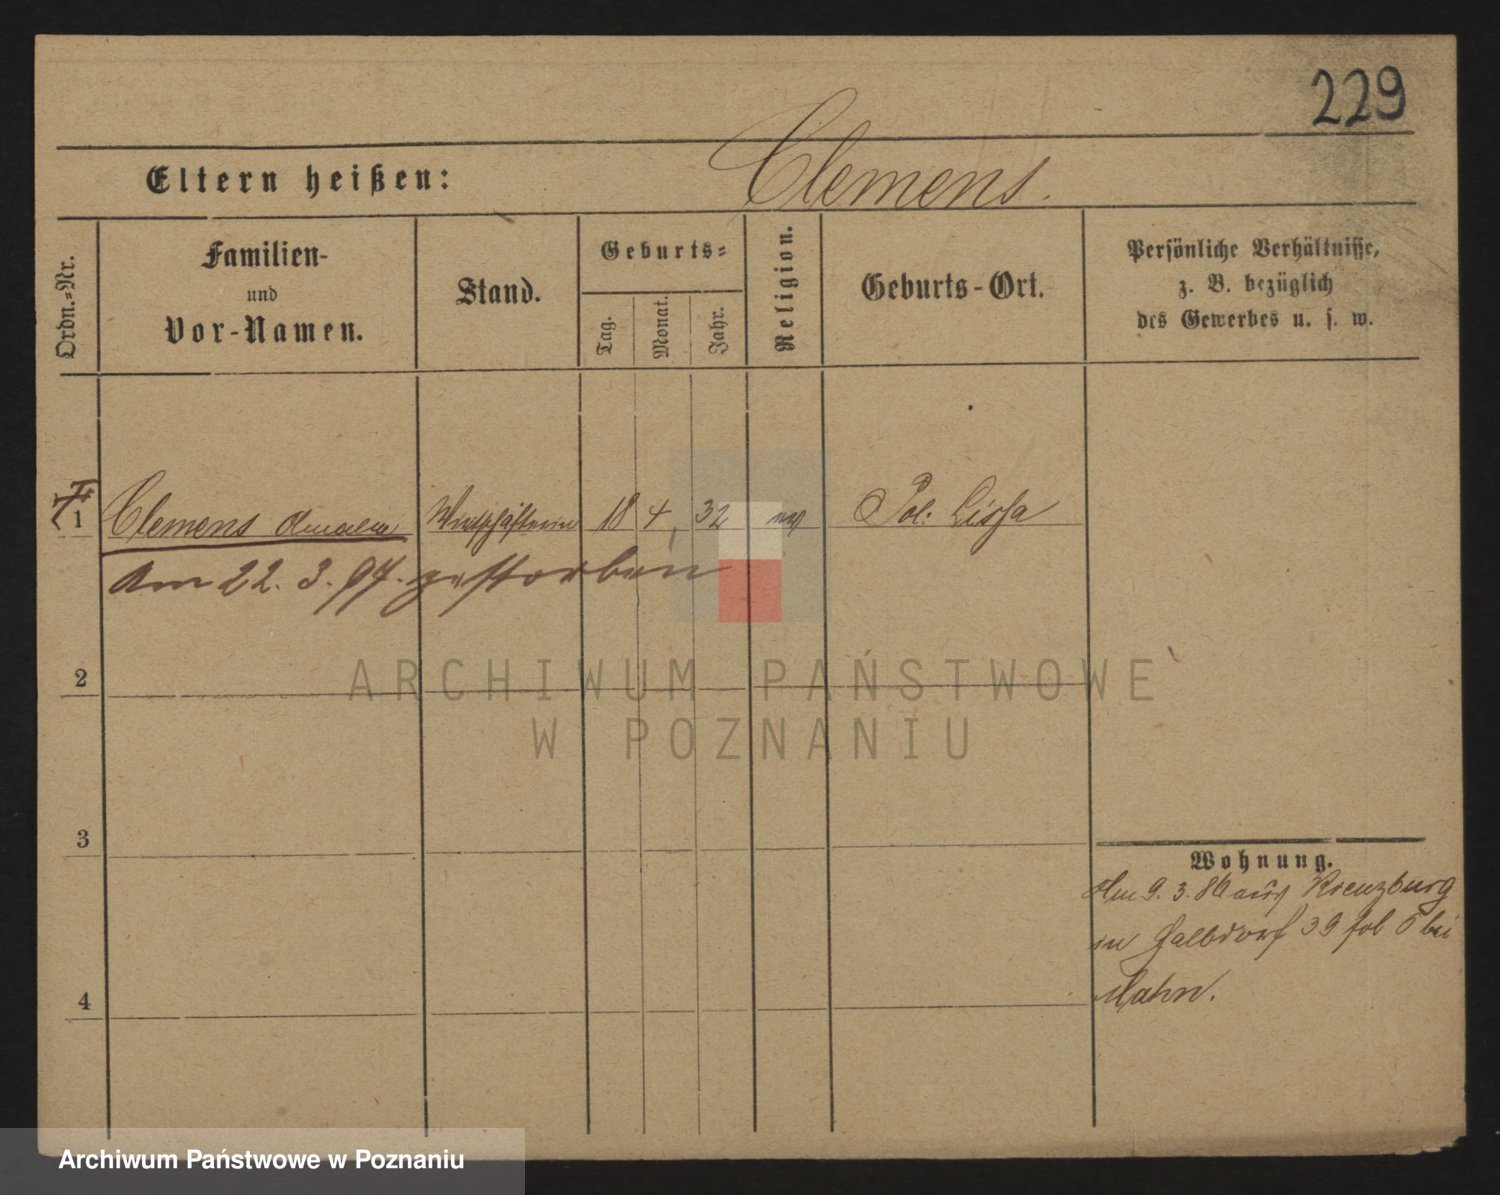 229
Eltern heißen: Clemens.
Ordn.-Nr.
Familien-
und
Vor-Namen.
Stand.
Geburts-
Tag.
Monat.
Jahr.
Religion.
Geburts-Ort.
Persönliche Verhältnisse,
z. B. bezüglich
des Gewerbes u. s. w.
1 Clemens Amalie Wirthschafterin 18 4 32 ev Pol. Lissa
Am 22. 3. 97. gestorben
2
ARCHIWUM PAŃSTWOWE
W POZNANIU
3
Wohnung.
Am 9. 3. 86 aus Kreuzburg
in 39 bei
4
Archiwum Państwowe w Poznaniu